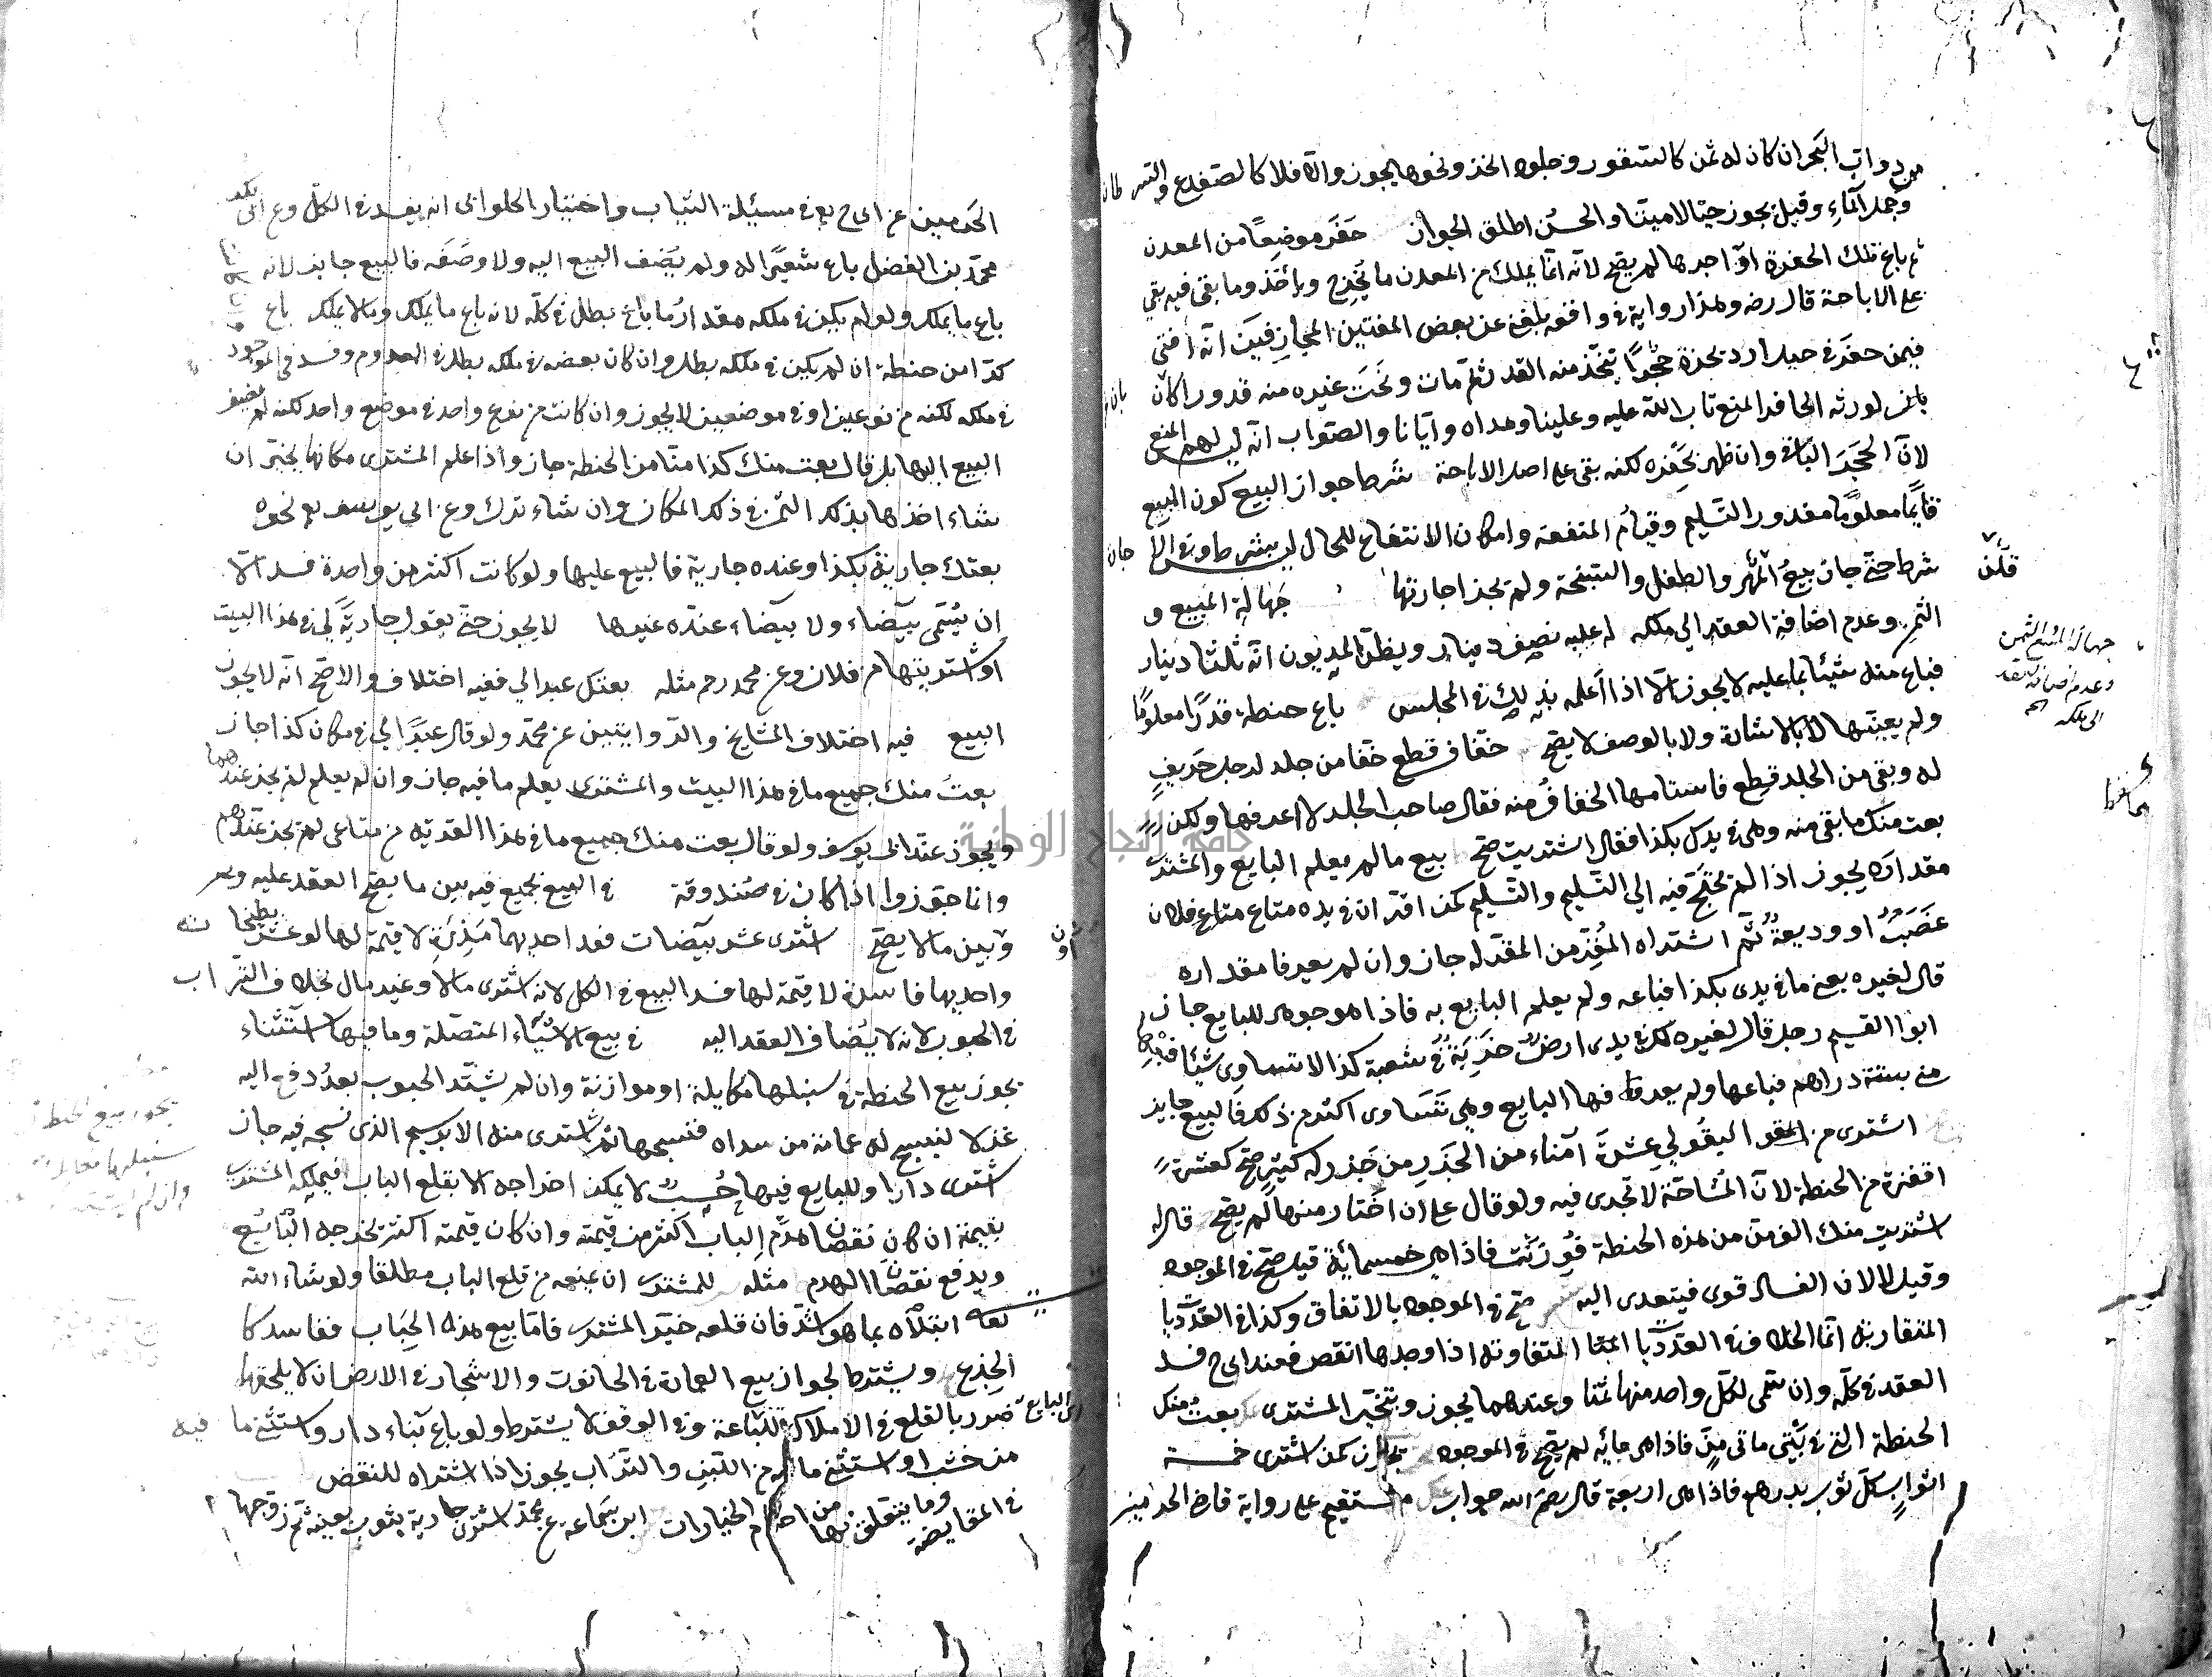 من دواب البحر ان كان له ثمن كالسقنقور وجلود الخز ونحوها يجوز والا فلا كالضفدع والسرطان
وجمد الماء وقيل يجوز حيا لا ميتا والحسن اطلق الجواز حفر موضعا من المعدن
ثم باع تلك الحفرة او آجرها لم يصح لانه انما يملك من المعدن ما يخرج ويأخذ وما بقي فيه بقي
على الاباحة قال رضه وهذا رواية في واقعه بلغني عن بعض المفتين انه أفتى
فيمن حفر في جبل حجرا يتخذ منه القدر ثم مات ونحت غيره منه قدورا كان
لورثه الحافر المنع تاب الله عليه وعلينا وهداه وايانا والصواب انه ليس لهم المنع
لان الحجر الباقي وان ظهر بحفره لكنه بقي على اصل الاباحة شرط جواز البيع كون المبيع
قايما معلوما مقدور التسليم وقيام المنفعة وامكان الانتفاع للحال ليس بشرط وفي الاجارة
شرط حتى جاز بيع المهر والطفل والسبخة ولم تجز اجارتها جهالة المبيع و
الثمن وعدم اضافة العقد الى ملكه له عليه نصف دينار ويظن المديون انه ثلثا دينار
فباع منه شيئا بما عليه لا يجوز الا اذا اعلمه بذلك في المجلس باع حنطة قدرا معلوما
ولم يعينها لا بالاشارة ولا بالوصف لا يصح خفاف قطع خفا من جلد لرجل حريف
له وبقي من الجلد قطع فاستامها الخفاف منه فقال صاحب الجلد لا اعرفها ولكن
بعت منك ما بقي منه وهي في يدك بكذا فقال اشتريت صح بيع ما لم يعلم البايع والمشتري
مقداره يجوز اذا لم يحتج فيه الى التسليم والتسلم كمن اقر ان في يده متاع فلان
غصب او وديعة ثم اشتراه المقر من المقر له جاز وان لم يعرفا مقداره
قال لغيره بعني ما في يدي بكذا فباعه ولم يعلم البايع به فاذا هو جوهر للبايع جاز
ابو القسم رجل قال لغيره لك في يدي ارض خربة في شعبة كذا لا تساوي شيئا
مني بستة دراهم فباعها ولم يعرفها البايع وهي تساوي اكثر من ذلك فالبيع جايز
اشترى من البقولي عشرة امناء من الجزر من جزر له كثير صح كعشرة
اقفزة من الحنطة لان المشاحة لا تجري فيه ولو قال على ان اختار منها لم يصح قال له
اشتريت منك الف من من هذه الحنطة فوزنت فاذا هي خمسمائة قيل صح في الموجود
وقيل لا لان الفساد قوي فيتعدى اليه صح في الموجود بالاتفاق وكذا في العدديات
المتقاربة انما الخلاف في العدديات المتفاوتة اذا وجدها انقص فعند ابي ح فسد
العقد في كله وان سمى لكل واحد منها ثمنا وعندهما يجوز ويتخير المشتري بعت منك
الحنطة التي في بيتي مائتي من فاذا هي مائة لم يصح في الموجود كمن اشترى خمسة
اثواب كل ثوب بدرهم فاذا هي اربعة قال رحمه الله جواب مستقيم على رواية قاضي الحرمين
قلت
جهالة المبيع والثمن
وعدم اضافة العقد
الى ملكه
الحرمين عن ابي ح في مسئلة الثياب واختيار الحلواني انه يفسد في الكل وعن ابي بكر
محمد بن الفضل باع شعيرا له ولم يضف البيع اليه ولا وصفه فالبيع جايز لانه
باع ما يملك ولو لم يكن في ملكه مقدار ما باع بطل في كله لانه باع ما يملك وما لا يملك باع
كذا من حنطة ان لم يكن في ملكه بطل وان كان بعضه في ملكه بطل في المعدوم وفسد في الموجود
في ملكه لكنه من نوعين او في موضعين لا يجوز وان كانت من نوع واحد في موضع واحد لكنه لم يضف
البيع اليها بل قال بعت منك كذا منا من الحنطة جاز واذا علم المشتري مكانها يخير ان
شاء اخذها بذلك الثمن في ذلك المكان وان شاء ترك وعن ابي يوسف نحوه
بعتك جارية بكذا وعنده جارية فالبيع عليها ولو كانت اكثر من واحدة فسد الا
ان يسمي بيضاء ولا بيضاء عنده غيرها لا يجوز حتى يقول جارية لي في هذا البيت
او اشتريتها من فلان وعن محمد رحمه مثله بعتك عبدا لي ففيه اختلاف والاصح انه لا يجوز
البيع فيه اختلاف المشايخ والروايتين عن محمد ولو قال عبدا لي في مكان كذا جاز
بعت منك جميع ما في هذا البيت والمشتري يعلم ما فيه جاز وان لم يعلم لم يجز عندهما
ويجوز عند ابي يوسف ولو قال بعت منك جميع ما في هذا القرية من متاعي لم يجز عندهم
وانما جوزوا اذا كان في صندوقة في البيع يجمع فيه بين ما يصح العقد عليه
وبين ما لا يصح اشترى عشر بيضات فقد احديهما مذرة لا قيمة لها او عشر بطيخات
واحديها فاسدة لا قيمة لها فسد البيع في الكل لانه اشترى مالا وغير مال بخلاف التراب
في الحبوب لانه لا يضاف العقد اليه في بيع الاشياء المتصلة وما فيها استثناء
يجوز بيع الحنطة في سنبلها مكايلة او موازنة وان لم يشتد الحبوب بعد دفع اليه
غزلا لينسج له عمامة من سداه فنسجها ثم اشترى منه الابريسم الذي نسجه فيه جاز
اشترى دارا وللبايع فيها حب لا يمكن اخراجه الا بقلع الباب فيملكه المشتري
بقيمة ان كان نقصان هدم الباب اكثر من قيمته وان كان قيمته اكثر يخرجه البايع
ويدفع نقصان الهدم مثله للمشتري ان يمنعه من قلع الباب مطلقا ولو شاء الله
لعله ابتلاه بما هو اشد فان قلعه خير المشتري فاما بيع هذه الحباب ففاسد كا
الجذع ويشترط لجواز بيع العمارة في الحانوت والاشجار في الارض ان لا يلحق
البايع ضرر بالقلع في الاملاك وفي الوقف لا يشترط ولو باع بناء دار واستثنى ما فيه
من خشب او استثنى ما فيه من اللبن والتراب يجوز اذا اشتراه للنقض
في المقايضة وما يتعلق بها من احكام الخيارات ابن سماعه عن محمد اشترى جارية بثوب بعينه ثم زوجها
يجوز بيع الحنطة
جامعة النجاح الوطنية